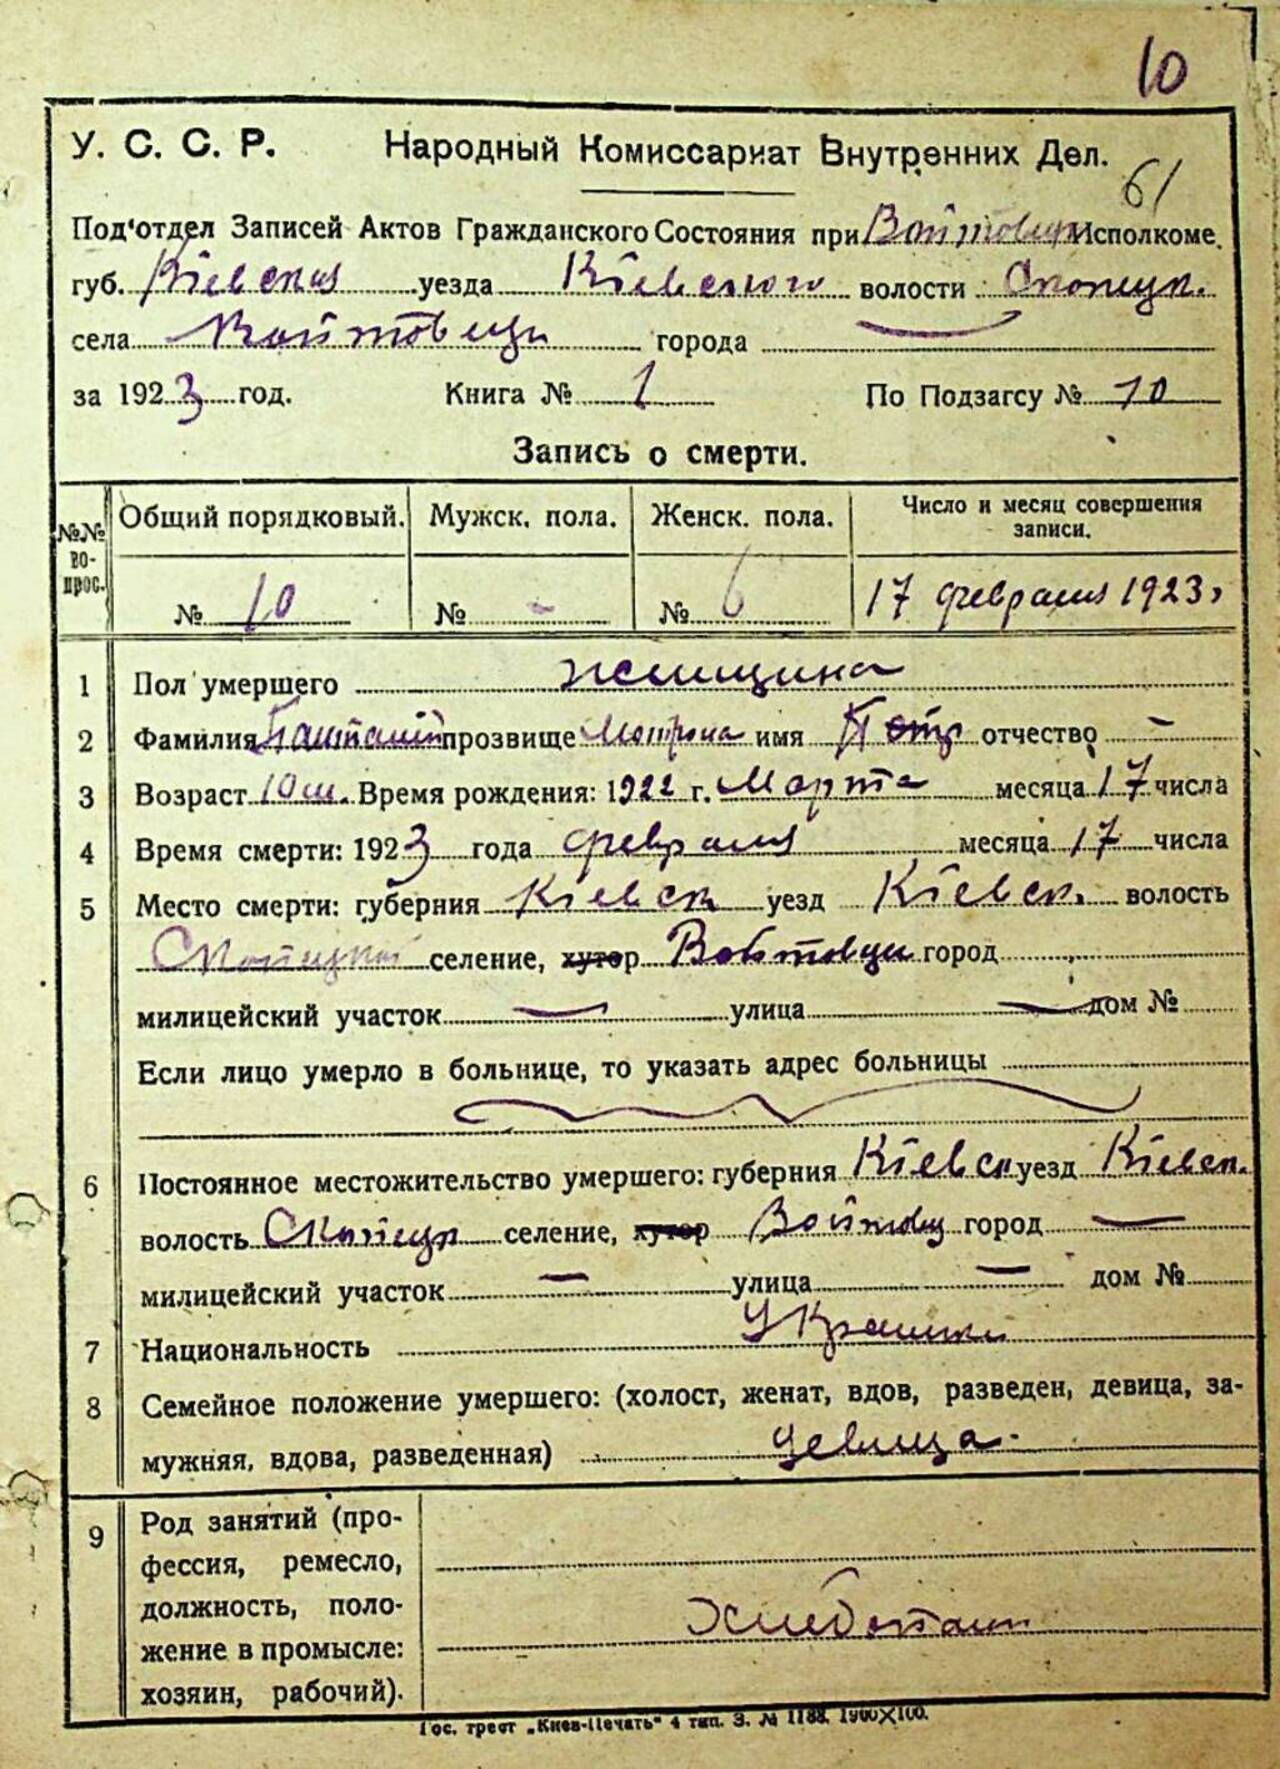 10
У. С. С. Р. Народный Комиссариат Внутренних Дел.
61
Под'отдел Записей Актов Гражданского Состояния при Войтовци Исполкоме.
губ. Кіевская уезда Кіевского волости Скопецк.
села Войтовци города —
за 1923 год. Книга № 1 По Подзагсу № 10
Запись о смерти.
№№ вопрос. Общий порядковый. Мужск. пола. Женск. пола. Число и месяц совершения записи.
№ 10 № - № 6 17 февраля 1923г
1 Пол умершего женщина
2 Фамилия прозвище Мотрона имя Петр отчество —
3 Возраст 10 м. Время рождения: 1922 г. Марта месяца 17 числа
4 Время смерти: 1923 года февраля месяца 17 числа
5 Место смерти: губерния Кіевск уезд Кіевск. волость
Скопецкой селение, хутор Войтовци город
милицейский участок — улица — дом №
Если лицо умерло в больнице, то указать адрес больницы
6 Постоянное местожительство умершего: губерния Кіевск уезд Кіевск.
волость Скопецк селение, хутор Войтовц город —
милицейский участок — улица — дом №
7 Национальность
8 Семейное положение умершего: (холост, женат, вдов, разведен, девица, за-
мужняя, вдова, разведенная) девица.
9 Род занятий (про-
фессия, ремесло,
должность, поло-
жение в промысле:
хозяин, рабочий).
Гос. трест „Киев-Печать" 4 тип. З. № 1188. 1900×100.